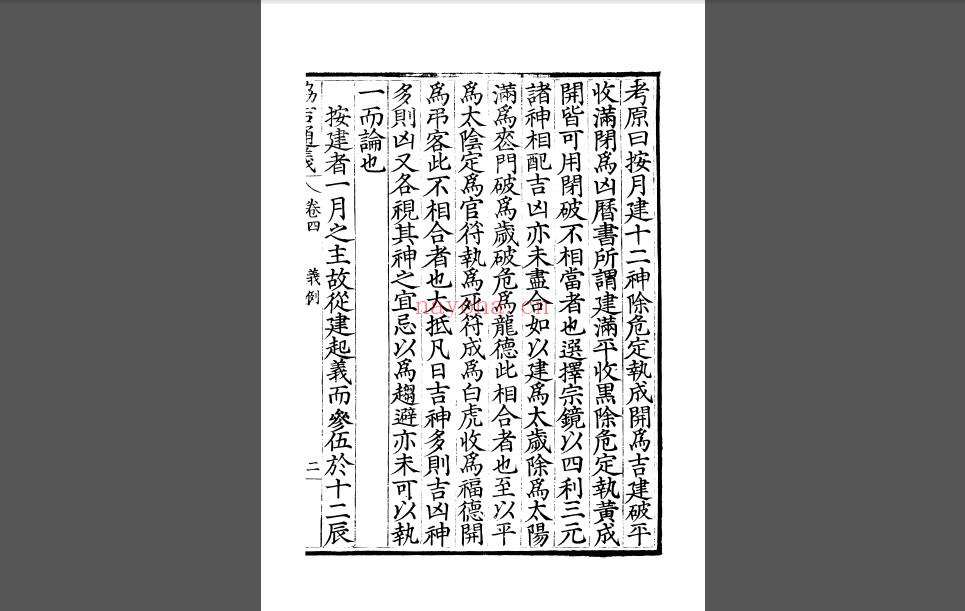 考原曰按月建十二神除危定執成開爲吉建破平
收滿閉爲凶曆書所謂建滿平收黒除危定執黄成
開皆可用閉破不相當者也選擇宗鏡以四利三元
諸神相配吉凶亦未盡合如以建爲太歲除爲太陽
滿爲喪門破爲歲破危爲龍德此相合者也至以平
爲太陰定爲官符執爲死符成爲白虎收爲福德開
爲弔客此不相合者也大抵凡日吉神多則吉凶神
多則凶又各視其神之宜忌以爲趨避亦未可以執
一而論也
按建者一月之主故從建起義而參伍於十二辰
協吉通義 卷四 義例 二
nayona.cn